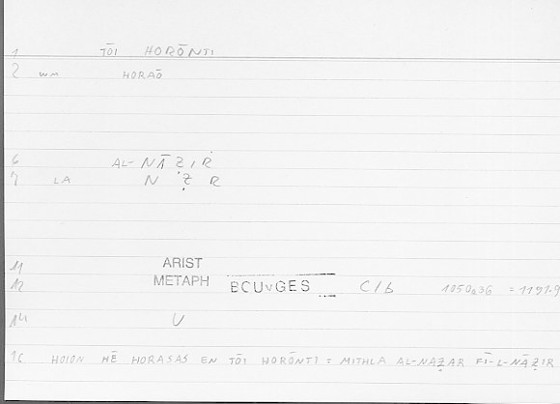 1 TŌI HORŌNTI
2 WM HORAŌ
6 AL-NĀẒIR
7 LA N Ẓ R
11 ARIST
12 METAPH BOUYGES C/b 1050a36 = 1191.9
14 V
16 HOION HĒ HORASAS EN TŌI HORŌNTI = MITHLA AL-NAẒAR FĪ-L-NĀẒIR